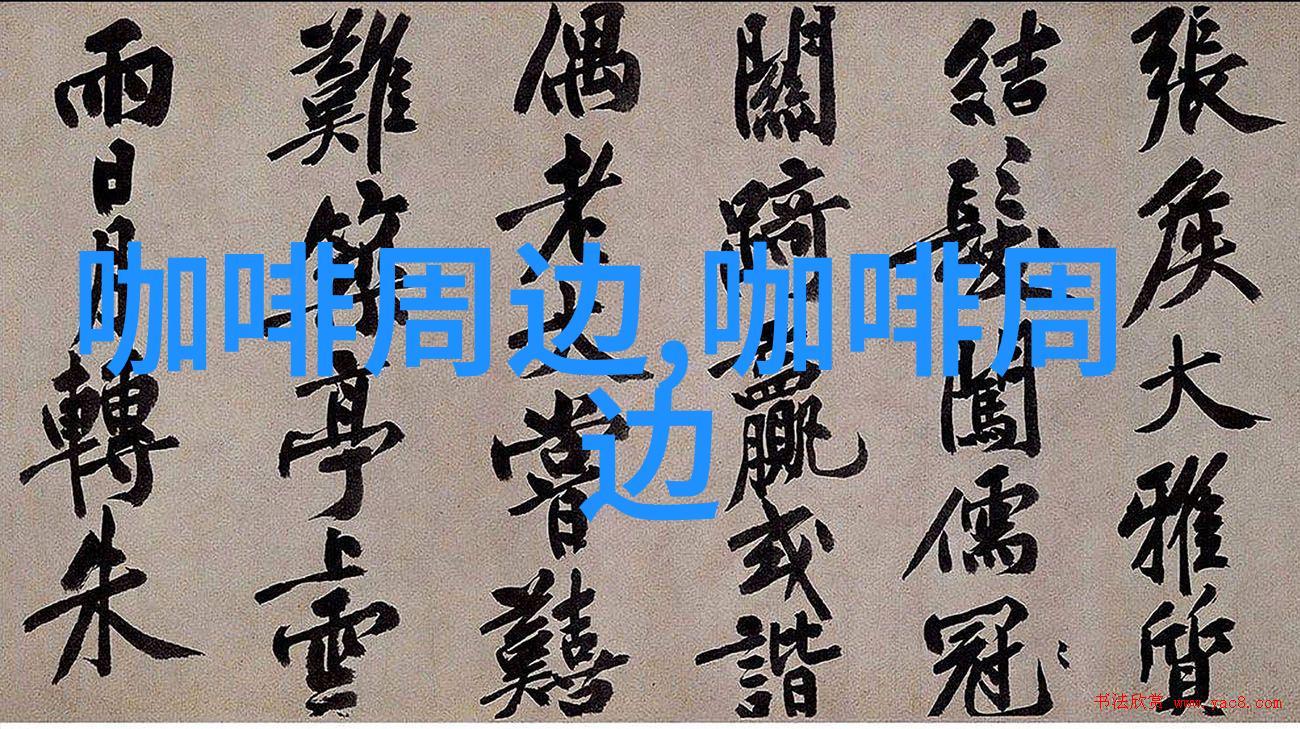 咖啡周边,咖啡周
边
張矦大雅質
結髮闖儒冠
關踦贏或諧
偶老大嘗囏
難築亭上雲
雨日月轉朱
书法欣赏 www.yac8.com